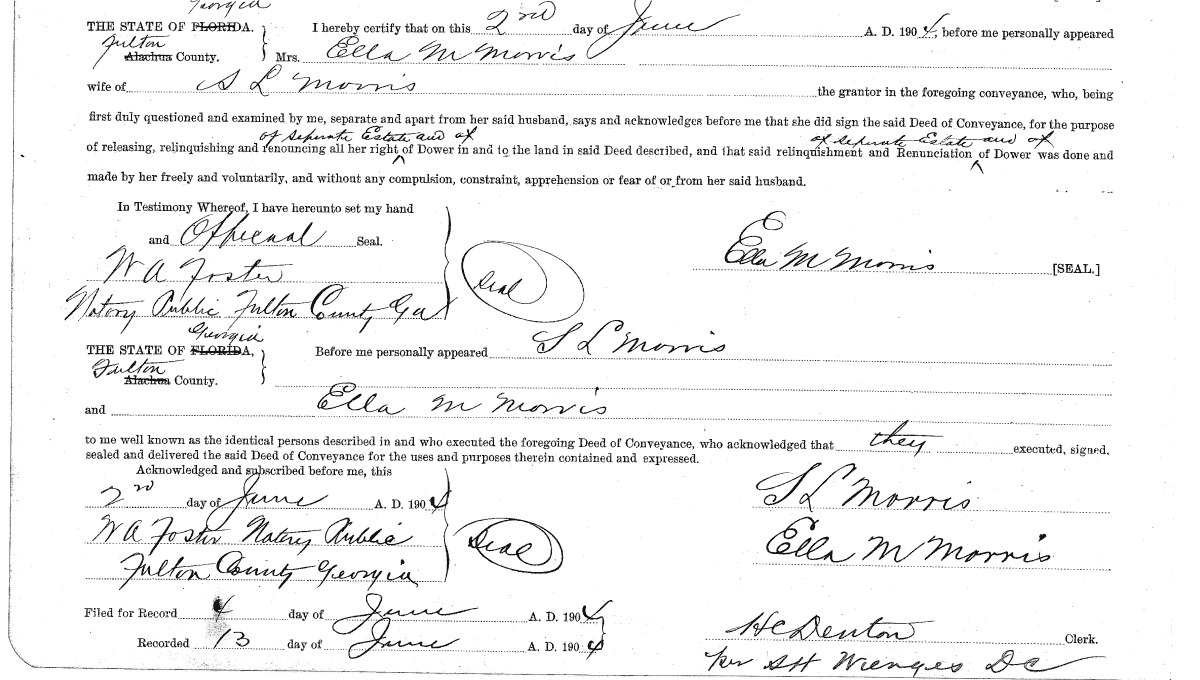 Georgia
THE STATE OF FLORIDA. } I hereby certify that on this 2nd day of June A. D. 1904, before me personally appeared
Fulton
Alachua County. } Mrs. Ella M Morris
wife of S L Morris the grantor in the foregoing conveyance, who, being
first duly questioned and examined by me, separate and apart from her said husband, says and acknowledges before me that she did sign the said Deed of Conveyance, for the purpose
of separate Estate and of of separate Estate and of
of releasing, relinquishing and renouncing all her right ^ of Dower in and to the land in said Deed described, and that said relinquishment and Renunciation ^ of Dower was done and
made by her freely and voluntarily, and without any compulsion, constraint, apprehension or fear of or from her said husband.
In Testimony Whereof, I have hereunto set my hand
and Official Seal.
W A Foster Seal Ella M Morris [SEAL.]
Notary Public Fulton County Ga
Georgia
THE STATE OF FLORIDA, } Before me personally appeared S L Morris
Fulton
Alachua County. }
and Ella M Morris
to me well known as the identical persons described in and who executed the foregoing Deed of Conveyance, who acknowledged that they executed, signed,
sealed and delivered the said Deed of Conveyance for the uses and purposes therein contained and expressed.
Acknowledged and subscribed before me, this
2nd day of June A. D. 1904 S L Morris
W A Foster Notary Public Seal Ella M Morris
Fulton County Georgia
Filed for Record 4 day of June A. D. 1904
Recorded 13 day of June A. D. 1904 H C Denton Clerk.
per S H Wienges D C